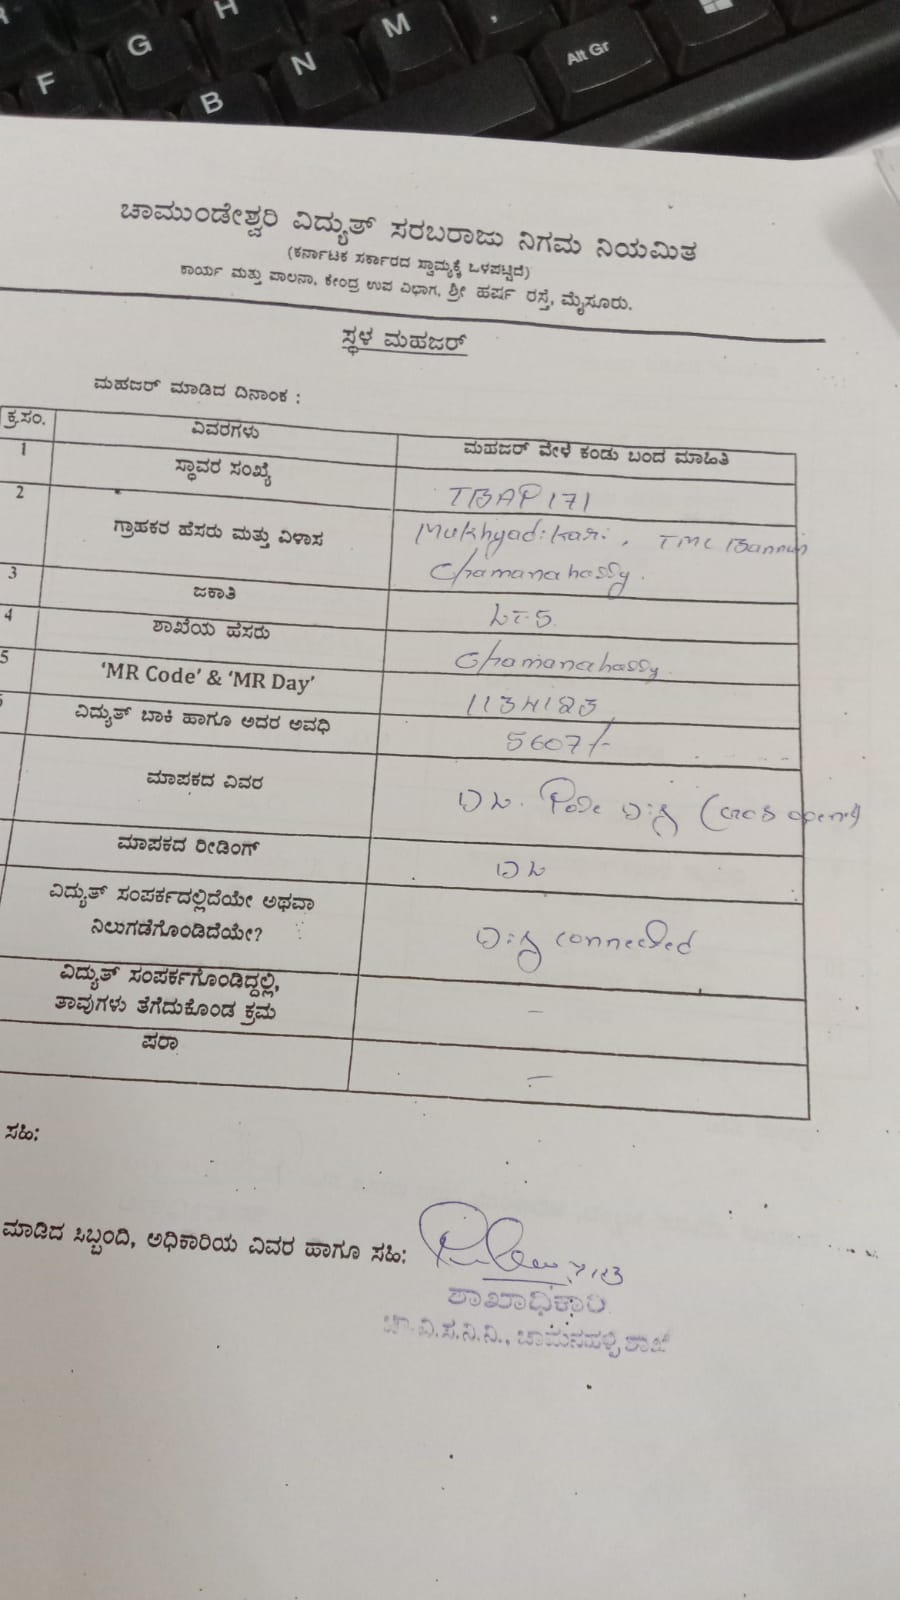 F G H M , N B Alt Gr
ಚಾಮುಂಡೇಶ್ವರಿ ವಿದ್ಯುತ್ ಸರಬರಾಜು ನಿಗಮ ನಿಯಮಿತ
(ಕರ್ನಾಟಕ ಸರ್ಕಾರದ ಸ್ವಾಮ್ಯಕ್ಕೆ ಒಳಪಟ್ಟಿದೆ)
ಕಾರ್ಯ ಮತ್ತು ಪಾಲನಾ, ಕೇಂದ್ರ ಉಪ ವಿಭಾಗ, ಶ್ರೀ ಹರ್ಷ ರಸ್ತೆ, ಮೈಸೂರು.
ಸ್ಥಳ ಮಹಜರ್
ಮಹಜರ್ ಮಾಡಿದ ದಿನಾಂಕ :
ಕ್ರ.ಸಂ. ವಿವರಗಳು ಮಹಜರ್ ವೇಳೆ ಕಂಡು ಬಂದ ಮಾಹಿತಿ
1 ಸ್ಥಾವರ ಸಂಖ್ಯೆ TBAP171
2 ಗ್ರಾಹಕರ ಹೆಸರು ಮತ್ತು ವಿಳಾಸ Mukhyadikari, TMC
Chamanahassy.
3 ಜಕಾತಿ LT-5.
4 ಶಾಖೆಯ ಹೆಸರು Chamanahassy.
5 'MR Code' & 'MR Day' 1134123
ವಿದ್ಯುತ್ ಬಾಕಿ ಹಾಗೂ ಅದರ ಅವಧಿ 5607/-
ಮಾಪಕದ ವಿವರ DL. Pole Dis
ಮಾಪಕದ ರೀಡಿಂಗ್ DL
ವಿದ್ಯುತ್ ಸಂಪರ್ಕದಲ್ಲಿದೆಯೇ ಅಥವಾ
ನಿಲುಗಡೆಗೊಂಡಿದೆಯೇ? Dis connected
ವಿದ್ಯುತ್ ಸಂಪರ್ಕಗೊಂಡಿದ್ದಲ್ಲಿ,
ತಾವುಗಳು ತೆಗೆದುಕೊಂಡ ಕ್ರಮ –
ಷರಾ –
ಸಹಿ:
ಮಾಡಿದ ಸಿಬ್ಬಂದಿ, ಅಧಿಕಾರಿಯ ವಿವರ ಹಾಗೂ ಸಹಿ:
ಶಾಖಾಧಿಕಾರಿ
ಚಾ.ವಿ.ಸ.ನಿ.ನಿ., ಚಾಮನಹಳ್ಳಿ ಶಾಖೆ